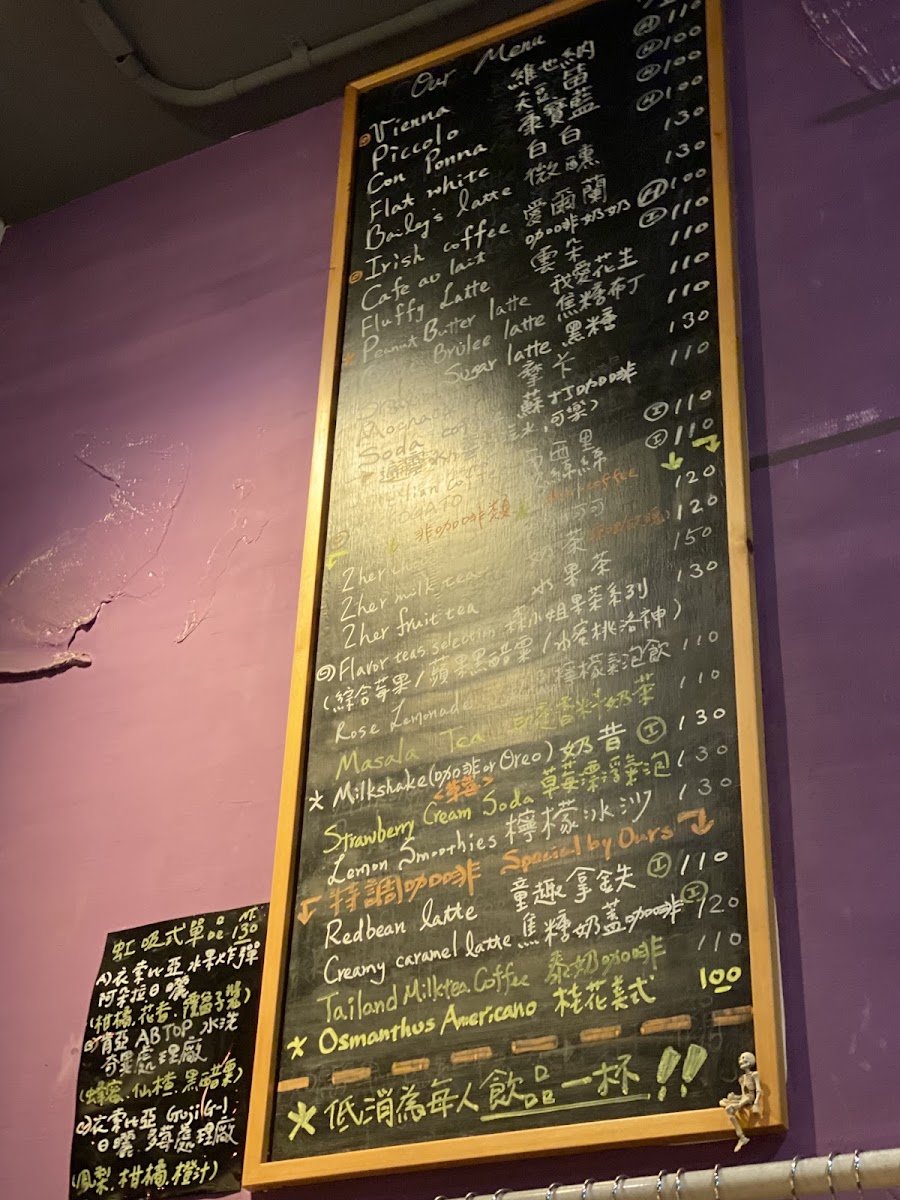 Our Menu
Vienna 維也納 Ⓗ110
Piccolo 笛 Ⓗ100
Con Ponna 康寶藍 Ⓗ100
Flat white 白白 Ⓗ100
Bailey's latte 微醺 130
Irish coffee 愛爾蘭 130
Cafe au lait 咖啡奶奶 Ⓗ100
Fluffy Latte 雲朵 Ⓘ110
Peanut Butter latte 我愛花生 110
Brûlee latte 焦糖布丁 110
Sugar latte 黑糖 110
Mocha 摩卡 130
Soda 蘇打咖啡 110
冰,可樂)
西里 Ⓘ110
綿綿 Ⓘ110
非咖啡類 coffee
2her 120
2her milk tea 奶茶 120
2her fruit tea 水果茶 150
Flavor teas selection 森小姐果茶系列 130
(綜合莓果/蘋果黑醋栗/水蜜桃洛神)
Rose Lemonade 檸檬氣泡飲 110
Masala Tea 印度香料奶茶 110
☆ Milkshake(咖啡 or Oreo) 奶昔 Ⓘ 130
<草莓>
Strawberry Cream Soda 草莓漂浮氣泡 130
Lemon Smoothies 檸檬冰沙 130
特調咖啡 Special by Ours
Redbean latte 童趣拿鐵 Ⓘ110
Creamy caramel latte 焦糖奶蓋咖啡 Ⓘ120
Tailand Milktea Coffee 泰奶咖啡 110
☆ Osmanthus Americano 桂花美式 100
☆低消為每人飲品一杯!!
虹吸式單品 130
A)衣索比亞 水果炸彈
阿朵拉日曬
(柑橘.花香.覆盆子醬)
B)肯亞 AB TOP 水洗
奇異處理廠
(蜂蜜.仙楂.黑醋栗)
C)衣索比亞 Guji G1
日曬 處理廠
(鳳梨.柑橘.橙汁)